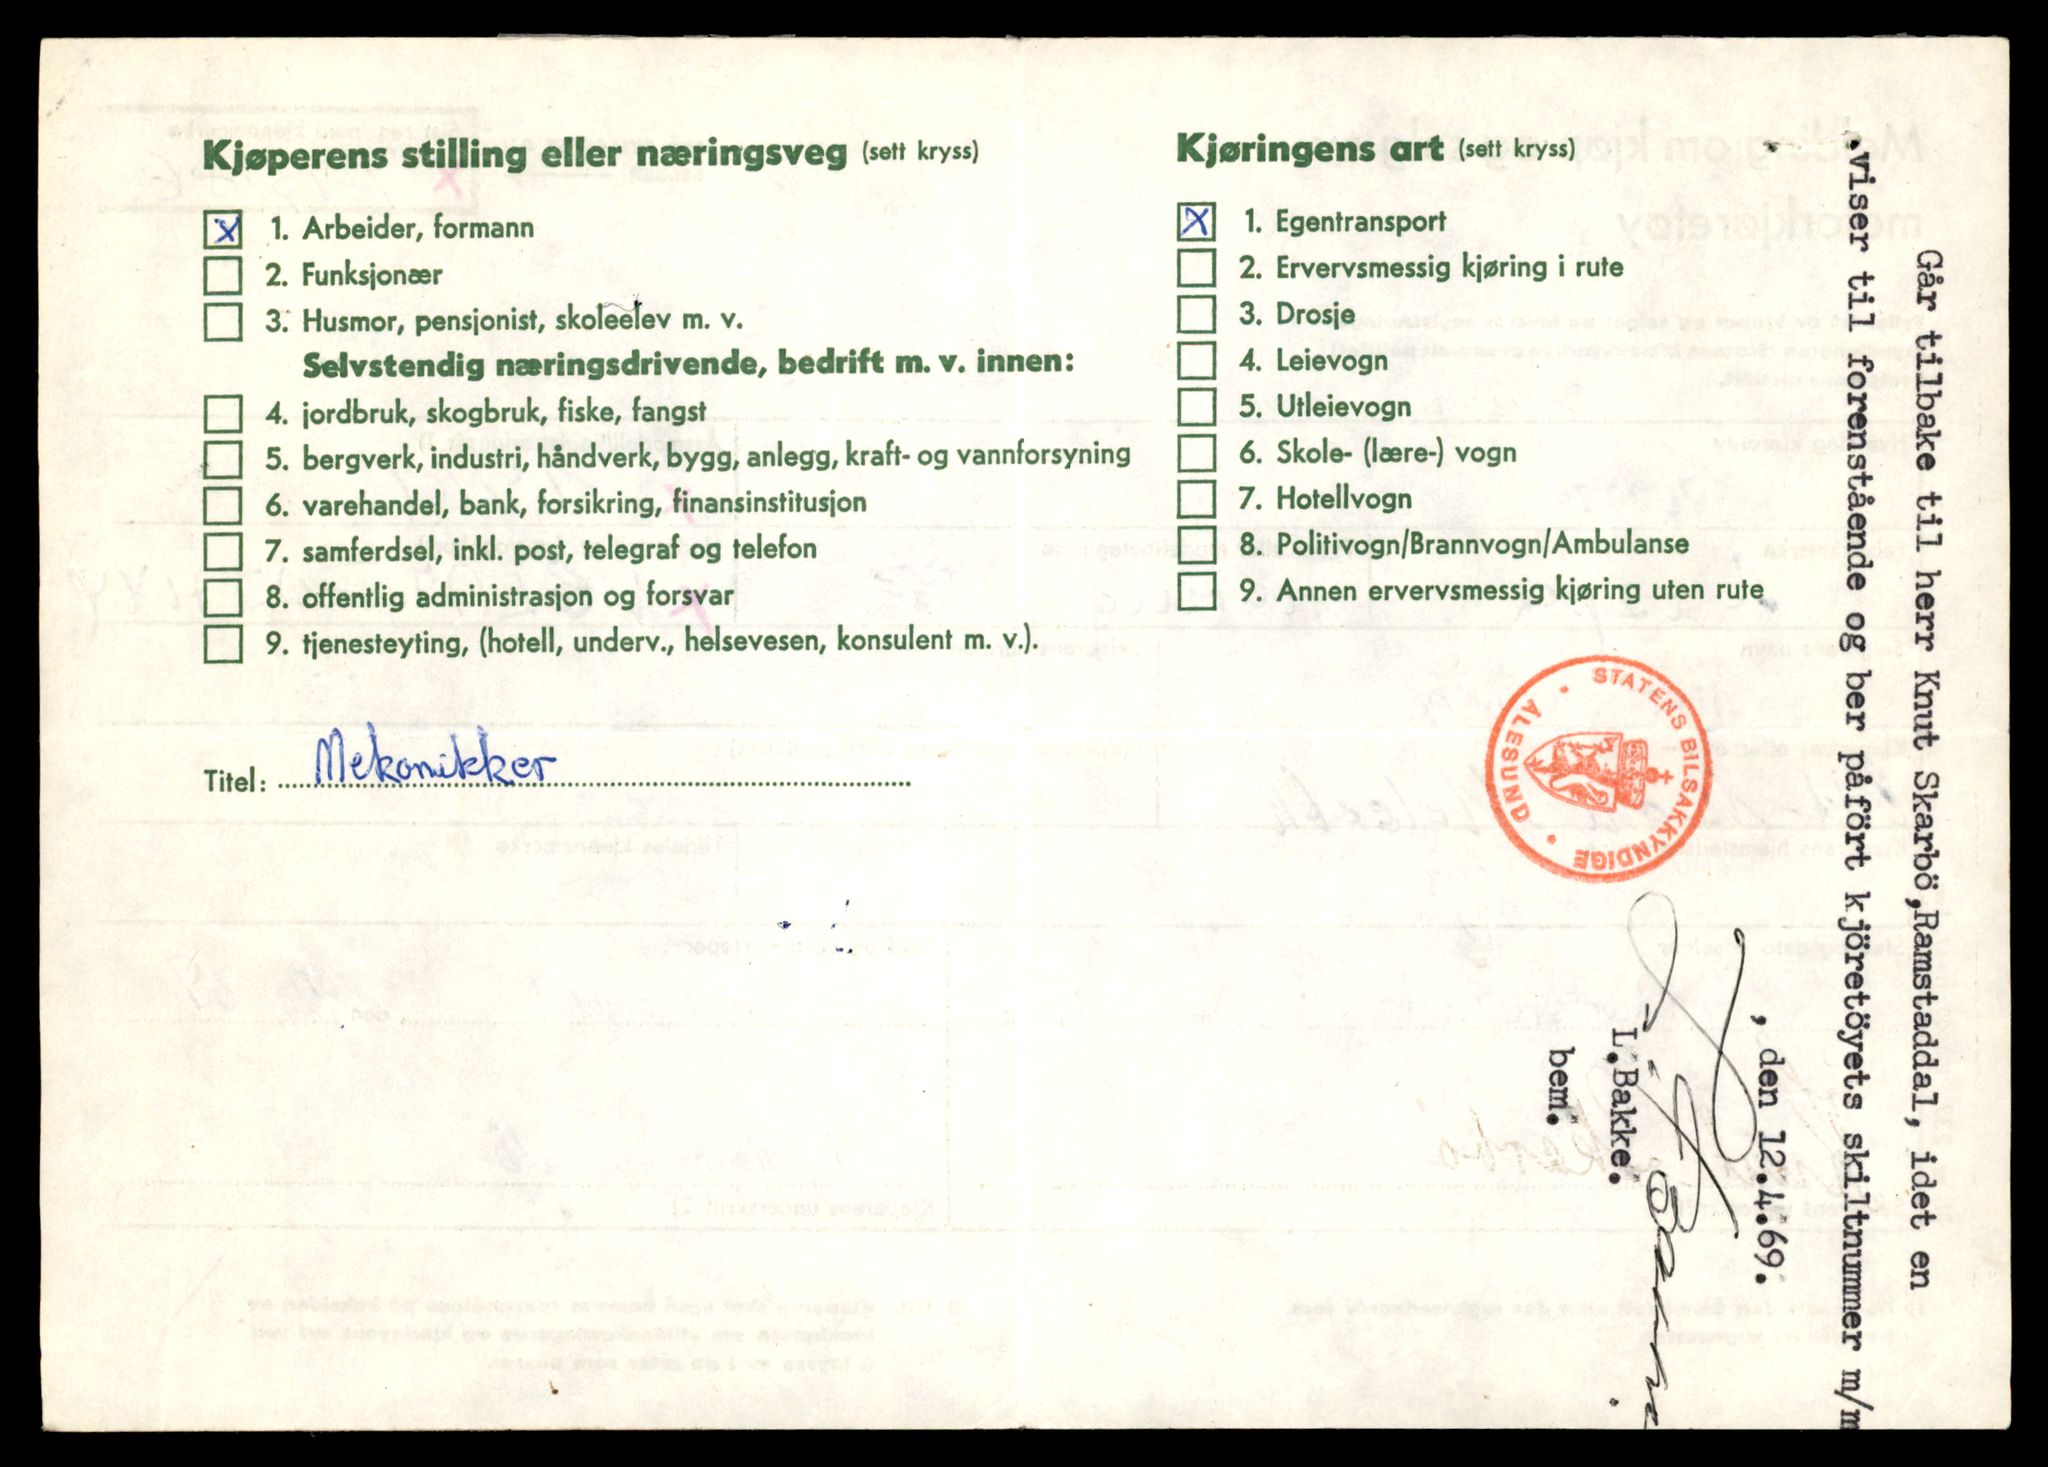 Kjøperens stilling eller næringsveg (sett kryss)
X 1. Arbeider, formann
2. Funksjonær
3. Husmor, pensjonist, skoleelev m. v.
Selvstendig næringsdrivende, bedrift m. v. innen:
4. jordbruk, skogbruk, fiske, fangst
5. bergverk, industri, håndverk, bygg, anlegg, kraft- og vannforsyning
6. varehandel, bank, forsikring, finansinstitusjon
7. samferdsel, inkl. post, telegraf og telefon
8. offentlig administrasjon og forsvar
9. tjenesteyting, (hotell, underv., helsevesen, konsulent m. v.).
Titel: Mekanikker
Kjøringens art (sett kryss)
X 1. Egentransport
2. Ervervsmessig kjøring i rute
3. Drosje
4. Leievogn
5. Utleievogn
6. Skole- (lære-) vogn
7. Hotellvogn
8. Politivogn/Brannvogn/Ambulanse
9. Annen ervervsmessig kjøring uten rute
STATENS BILSAKKYNDIGE
ÅLESUND
Går tilbake til herr Knut Skarbö,Ramstaddal, idet en
.viser til forenstående og ber påfört kjöretöyets skiltnummer m/m
, den 12.4.69.
L.Bakke.
bem.